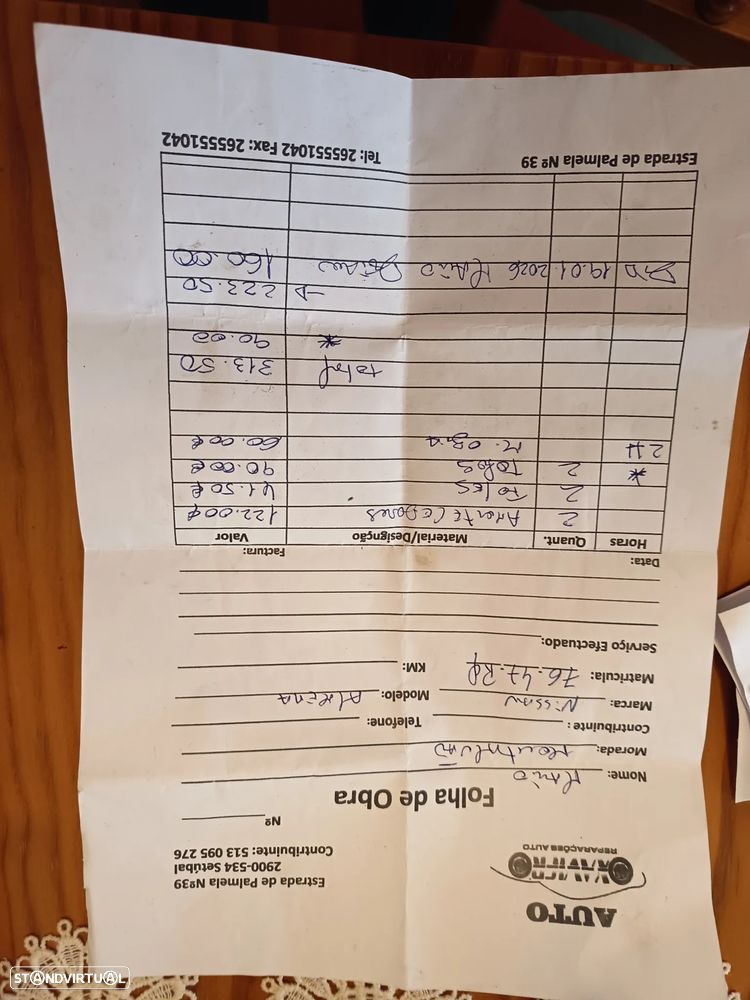 AUTO
XAVIER
REPARAÇÕES AUTO
Estrada de Palmela Nº39
2900-534 Setúbal
Contribuinte: 513 095 276
Nº
Folha de Obra
Nome: Mário
Morada:
Contribuinte: Telefone:
Marca: Nissan Modelo: Almera
Matricula: 76.47.RP KM:
Serviço Efectuado:
Data: Factura:
Horas Quant. Material/Designção Valor
2 Amortecedores 122.00€
2 Foles 41.50€
* 2 Topes 90.00€
2H M. obra 60.00€
total 313.50
* 90.00
223.50
19.01.2026 Mário 160.00
Estrada de Palmela Nº 39 Tel: 265551042 Fax: 265551042
STANDVIRTUAL